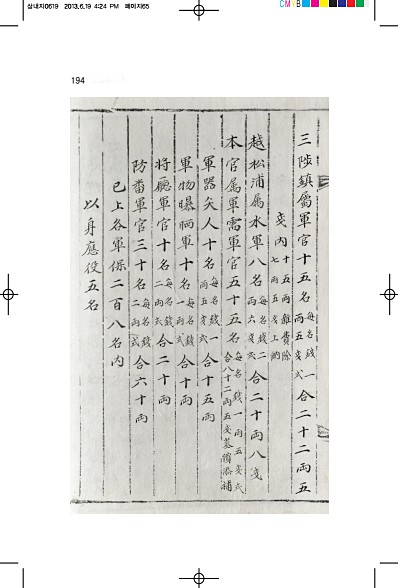 삼내지0619 2013.6.19 4:24 PM 페이지65
CMYB
194
三陟鎭屬軍官十五名每名錢一兩五戔式合二十二兩五
戔內十五兩雜費除七兩五戔上納
越松浦屬水軍八名每名錢二兩六戔式合二十兩八戔
本官屬軍需軍官五十五名每名錢一兩五戔式合八十二兩五戔添補
軍器矢人十名每名錢一兩五戔式合十五兩
軍物曝晒軍十名每名錢一兩式合十兩
將廳軍官十名每名錢二兩式合二十兩
防番軍官三十名每名錢二兩式合六十兩
已上各軍保二百八名內
以身應役五名